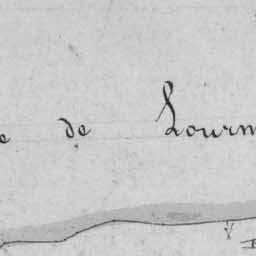 e de Lourm